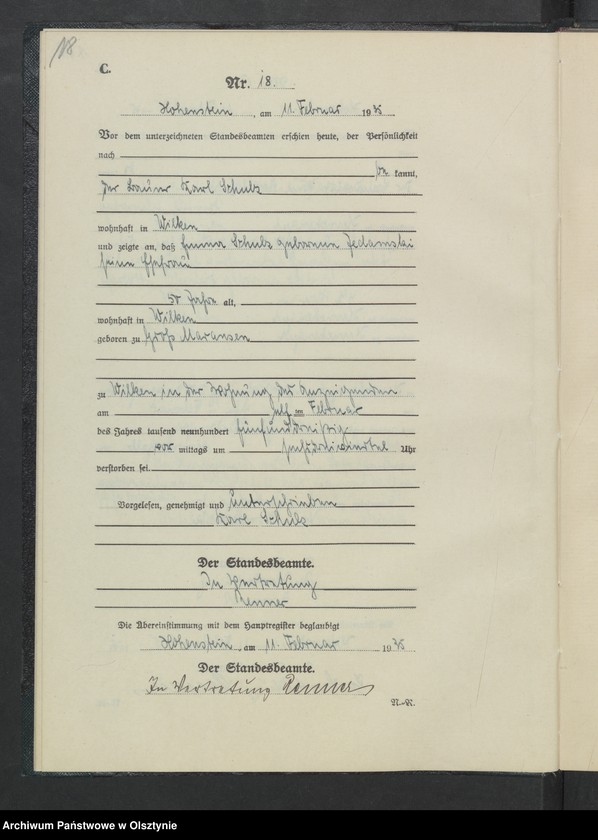 18
C.
Nr. 18.
Hohenstein, am 11. Februar 1935.
Vor dem unterzeichneten Standesbeamten erschien heute, der Persönlichkeit
nach
be kannt,
der Bauer Karl Schulz
wohnhaft in Wilken
und zeigte an, daß Emma Schulz geborene
seine Ehefrau
Jahre alt,
wohnhaft in Wilken
geboren zu Groß Maransen
zu Wilken in der Wohnung des Anzeigenden
am elf ten Februar
des Jahres tausend neunhundert fünfunddreißig
vor mittags um Uhr
verstorben sei.
Vorgelesen, genehmigt und unterschrieben
Karl Schulz
Der Standesbeamte.
In Vertretung
Renner
Die Übereinstimmung mit dem Hauptregister beglaubigt
Hohenstein, am 11. Februar 1935
Der Standesbeamte.
In Vertretung Renner
N.-R.
Archiwum Państwowe w Olsztynie